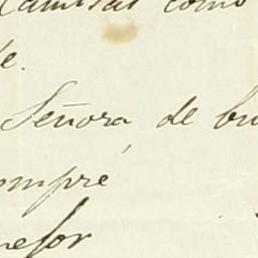 camisas como
te.
Señora de bu
ompré
mejor